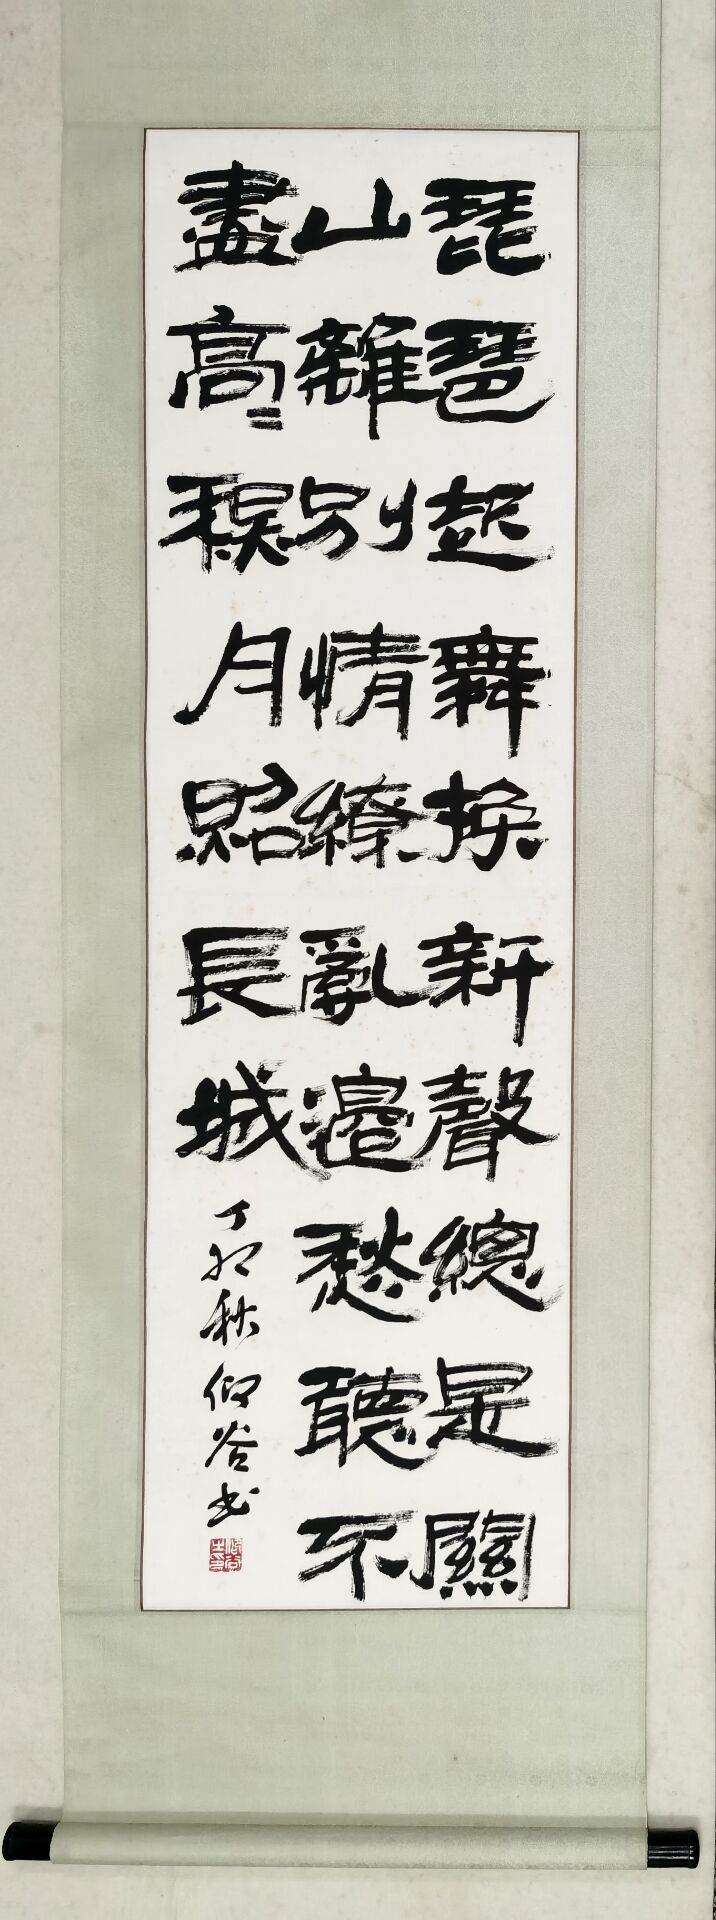 琵琶起舞換新聲總是關
山離別情繚亂邊愁聽不
盡高〻秋月照長城
丁卯秋仰谷书